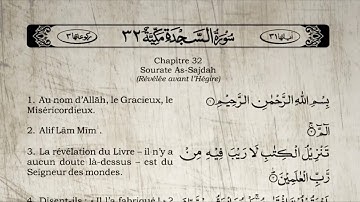 اٰیاتها ٣١ سُوْرَةُ السَّجْدَةِ مَكِّيَّةٌ ٣٢ رکوعاتها ٣
Chapitre 32
Sourate As-Sajdah
(Révélée avant l'Hégire)
1. Au nom d'Allāh, le Gracieux, le
Miséricordieux.
بِسْمِ اللّٰهِ الرَّحْمٰنِ الرَّحِيْمِ
2. Alif Lām Mīm
الٓمّٓ
3. La révélation du Livre – il n'y a
aucun doute là-dessus – est du
Seigneur des mondes.
تَنْزِيْلُ الْكِتٰبِ لَا رَيْبَ فِيْهِ مِنْ
رَّبِّ الْعٰلَمِيْنَ
4. Disent-ils : « Il l'a fabriqué